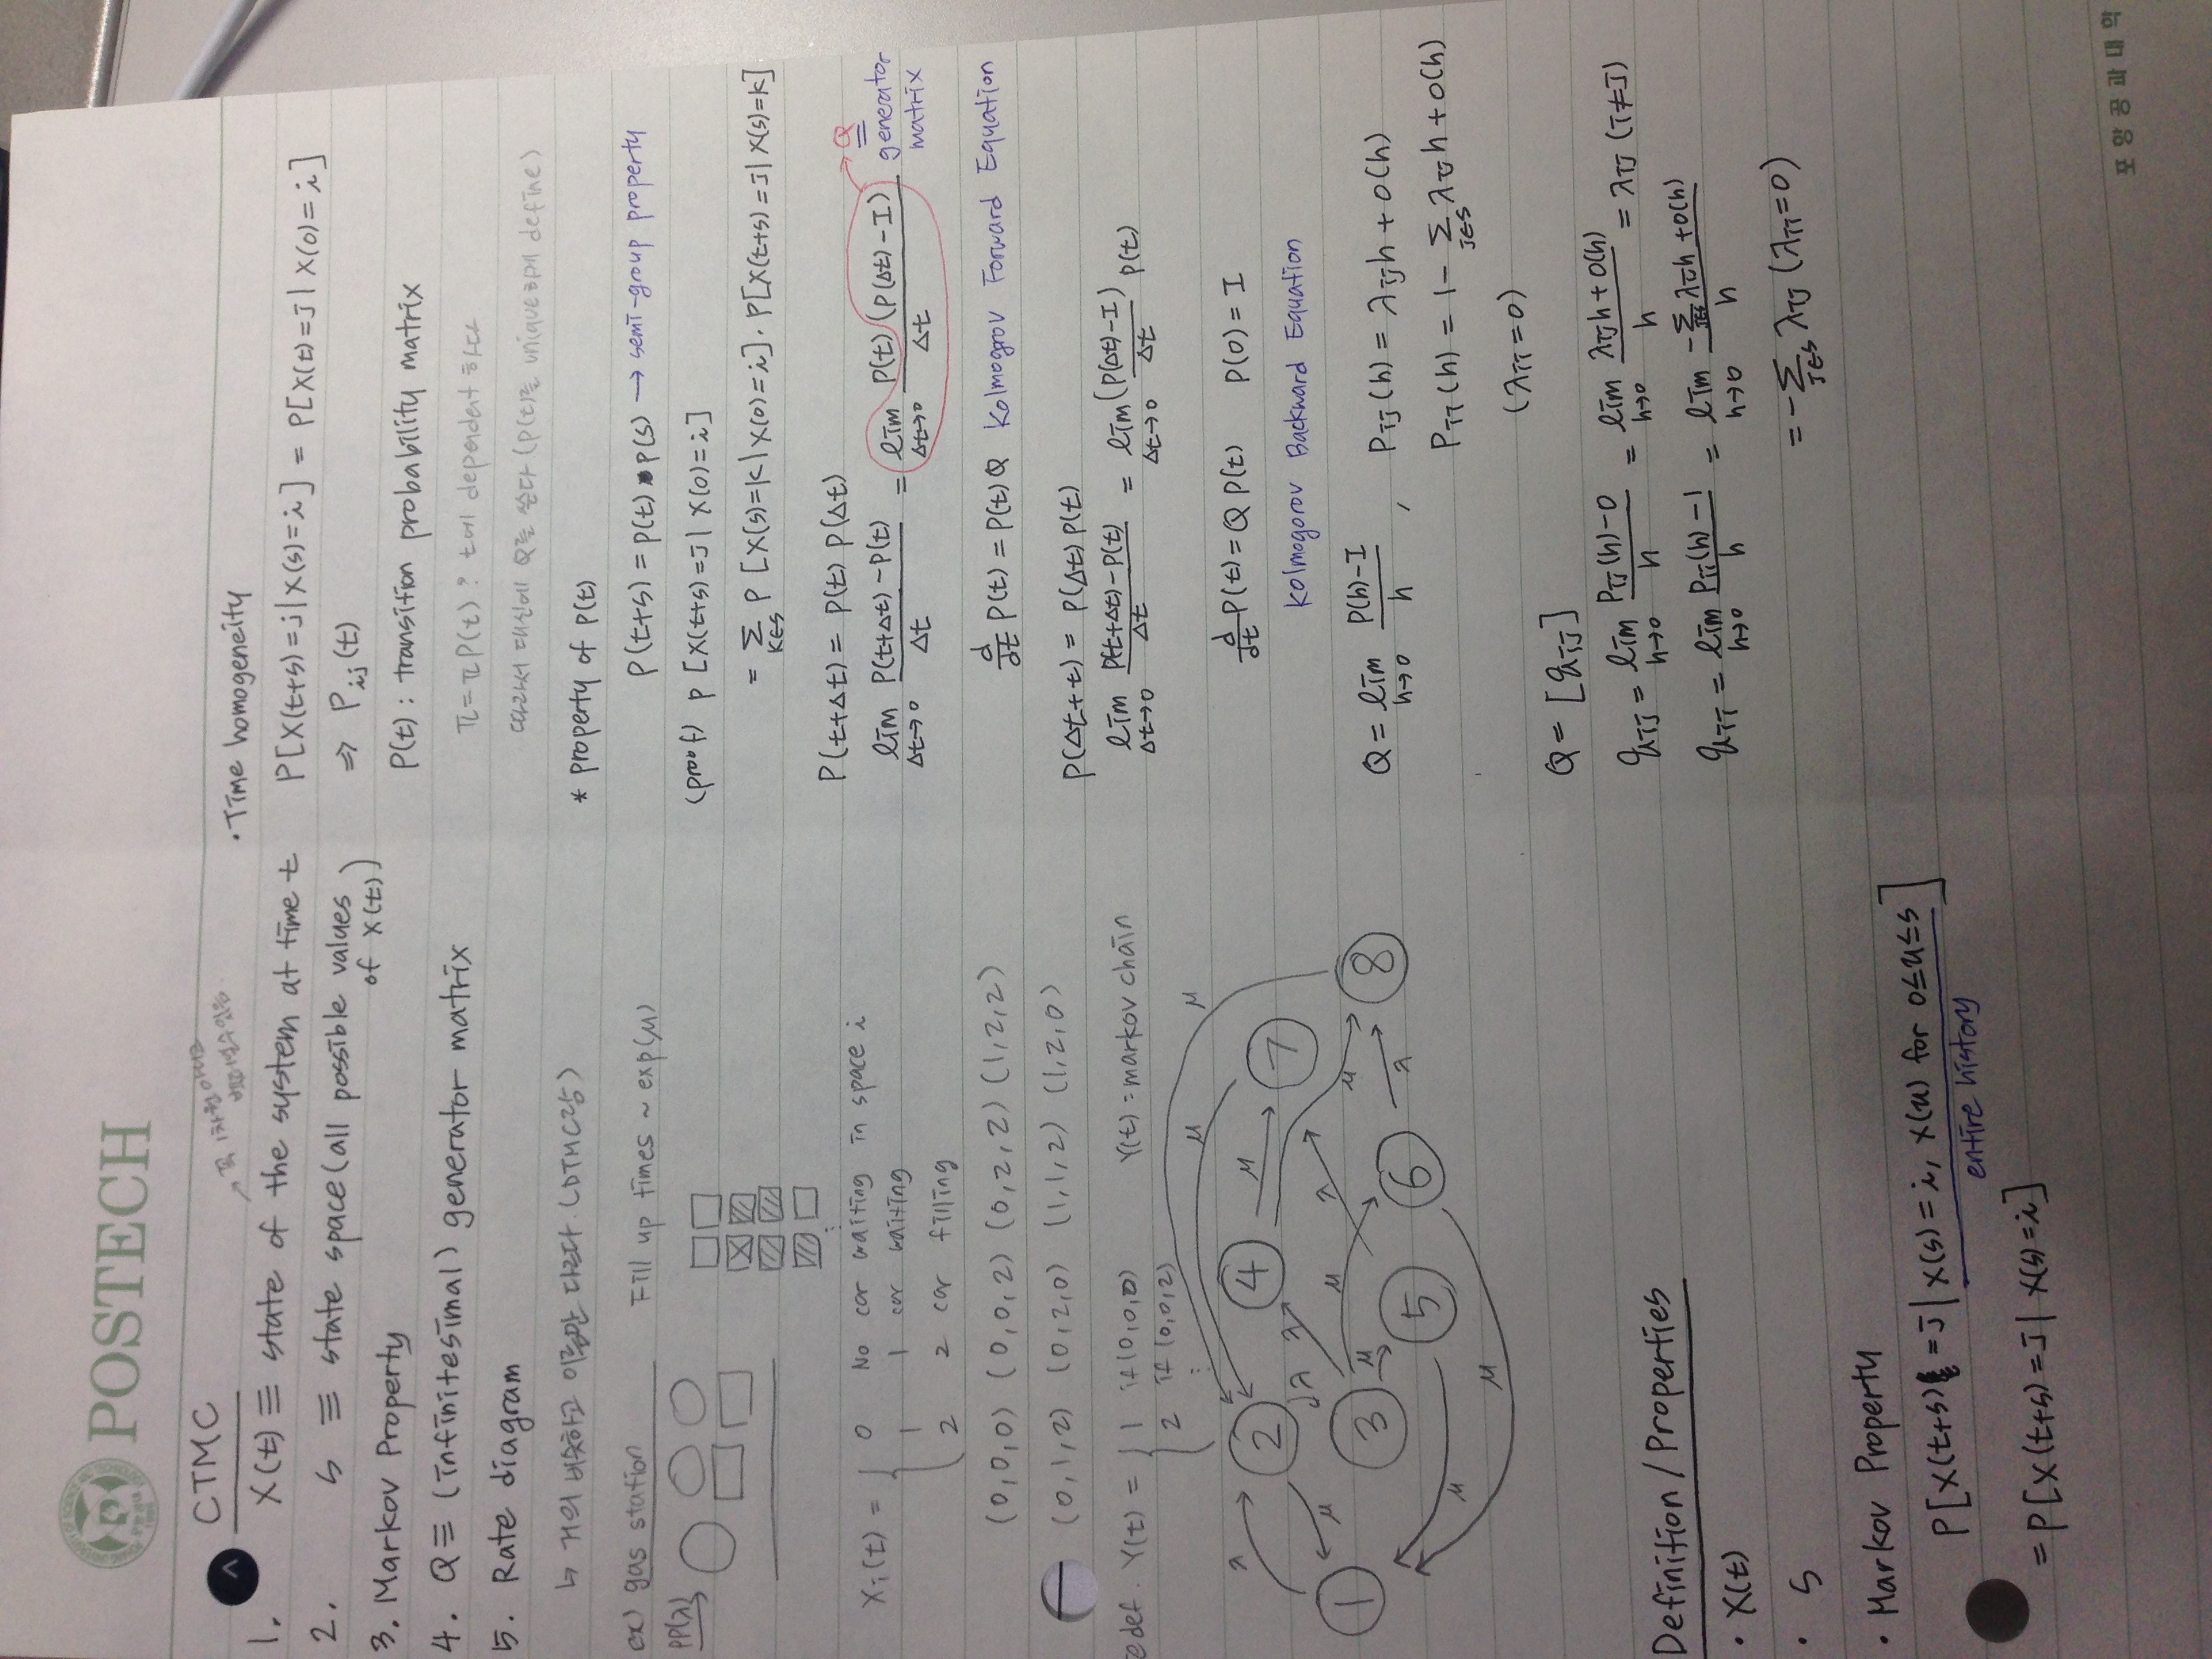 POSTECH
CTMC
꼭 1차원 아니고
벡터일수있음
1. X(t) ≡ state of the system at time t
2. S ≡ state space (all possible values
of X(t))
3. Markov Property
4. Q ≡ (infinitesimal) generator matrix
5. Rate diagram
↳ 거의 비슷하고 이름만 다르다. (DTMC랑)
ex) gas station Fill up times ~ exp(μ)
PP(λ)
Xi(t) = { 0 No car waiting in space i
1 1 car waiting
2 2 car filling
(0,0,0) (0,0,2) (0,2,2) (1,2,2)
(0,1,2) (0,2,0) (1,1,2) (1,2,0)
edef. Y(t) = { 1 if (0,0,0) Y(t) = markov chain
2 if (0,0,2)
⋮
μ μ
λ 2 4 μ 7
μ λ λ
1 3 μ λ μ 8
μ 5 6 λ
μ
μ
Definition / Properties
· X(t)
· S
· Markov Property
P[X(t+s) = j | X(s) = i, X(u) for 0≤u≤s]
entire history
= P[X(t+s) = j | X(s) = i]
· Time homogeneity
P[X(t+s) = j | X(s) = i] = P[X(t) = j | X(0) = i]
⇒ Pij(t)
P(t) : transition probability matrix
π = πP(t) ? t에 dependent 하다
따라서 대신에 Q를 쓴다 (P(t)를 unique하게 define)
* property of P(t)
P(t+s) = P(t) · P(s) → semi-group property
(proof) P [X(t+s) = j | X(0) = i]
= Σ k∈S P [X(s) = k | X(0) = i] · P[X(t+s) = j | X(s) = k]
P(t+Δt) = P(t) P(Δt)
lim Δt→0 P(t+Δt) - P(t) / Δt = lim Δt→0 P(t) (P(Δt) - I) / Δt Q generator matrix
d/dt P(t) = P(t) Q Kolmogrov Forward Equation
P(Δt+t) = P(Δt) P(t)
lim Δt→0 P(t+Δt) - P(t) / Δt = lim Δt→0 (P(Δt) - I) / Δt P(t)
d/dt P(t) = Q P(t) P(0) = I
Kolmogorov Backward Equation
Q = lim h→0 P(h) - I / h , Pij(h) = λijh + o(h)
Pii(h) = 1 - Σ j∈S λijh + o(h)
(λii = 0)
Q = [qij]
qij = lim h→0 Pij(h) - 0 / h = lim h→0 λijh + o(h) / h = λij (i≠j)
qii = lim h→0 Pii(h) - 1 / h = lim h→0 -Σ j∈S λijh + o(h) / h
= -Σ j∈S λij (λii = 0)
포항공과대학